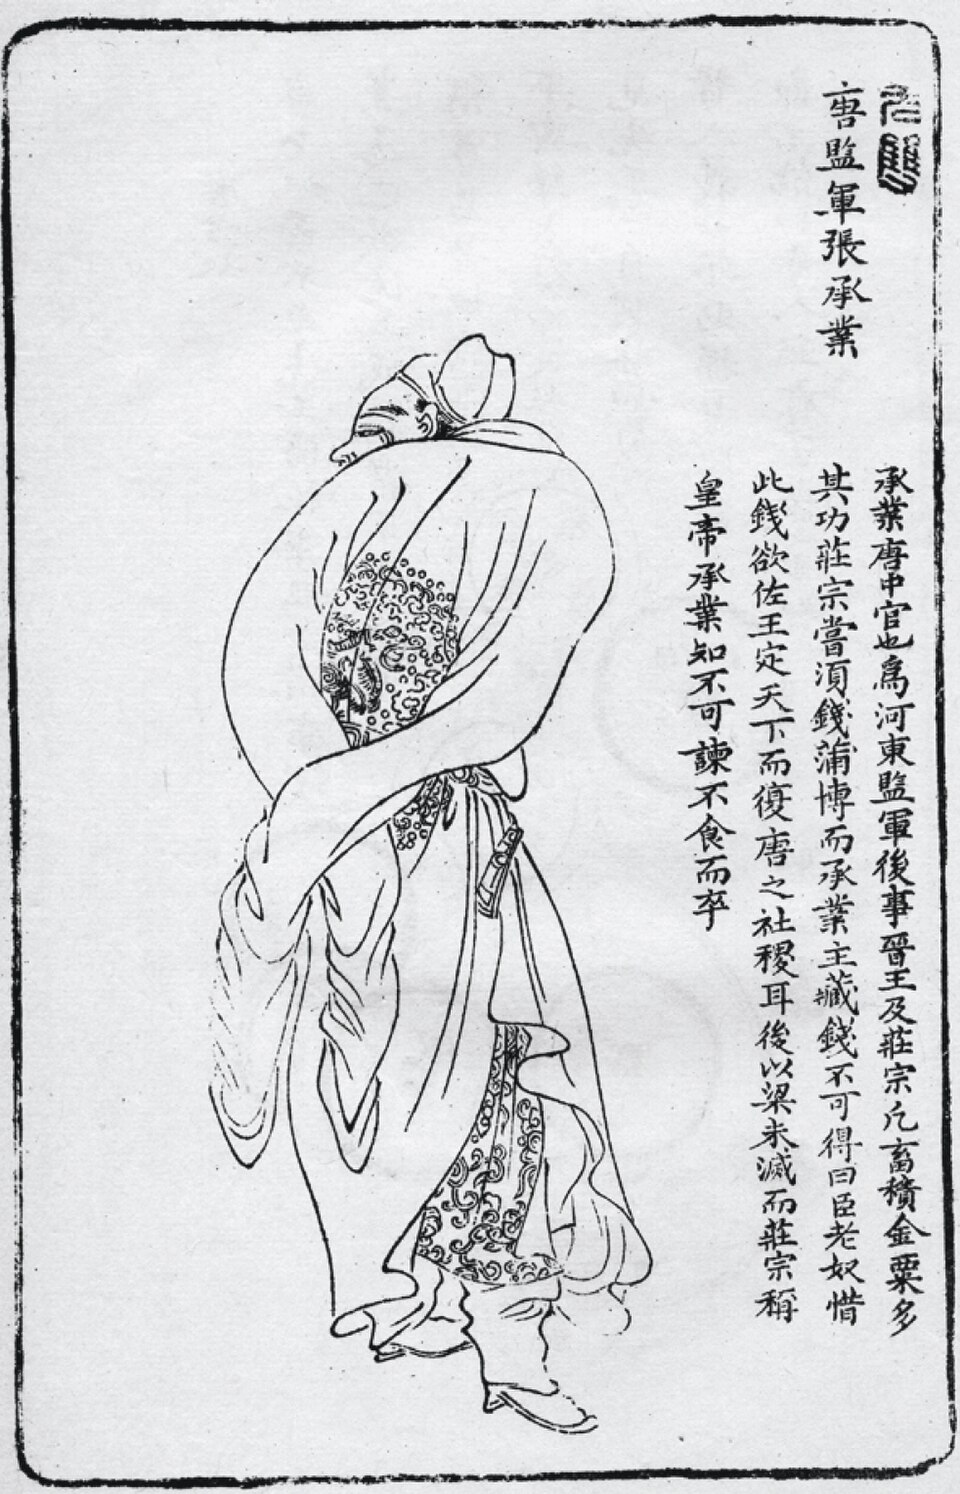 無雙
唐監軍張承業
承業唐中官也為河東監軍後事晉王及莊宗凡畜積金粟多
其功莊宗嘗須錢蒲博而承業主藏錢不可得曰臣老奴惜
此錢欲佐王定天下而復唐之社稷耳後以梁未滅而莊宗稱
皇帝承業知不可諫不食而卒